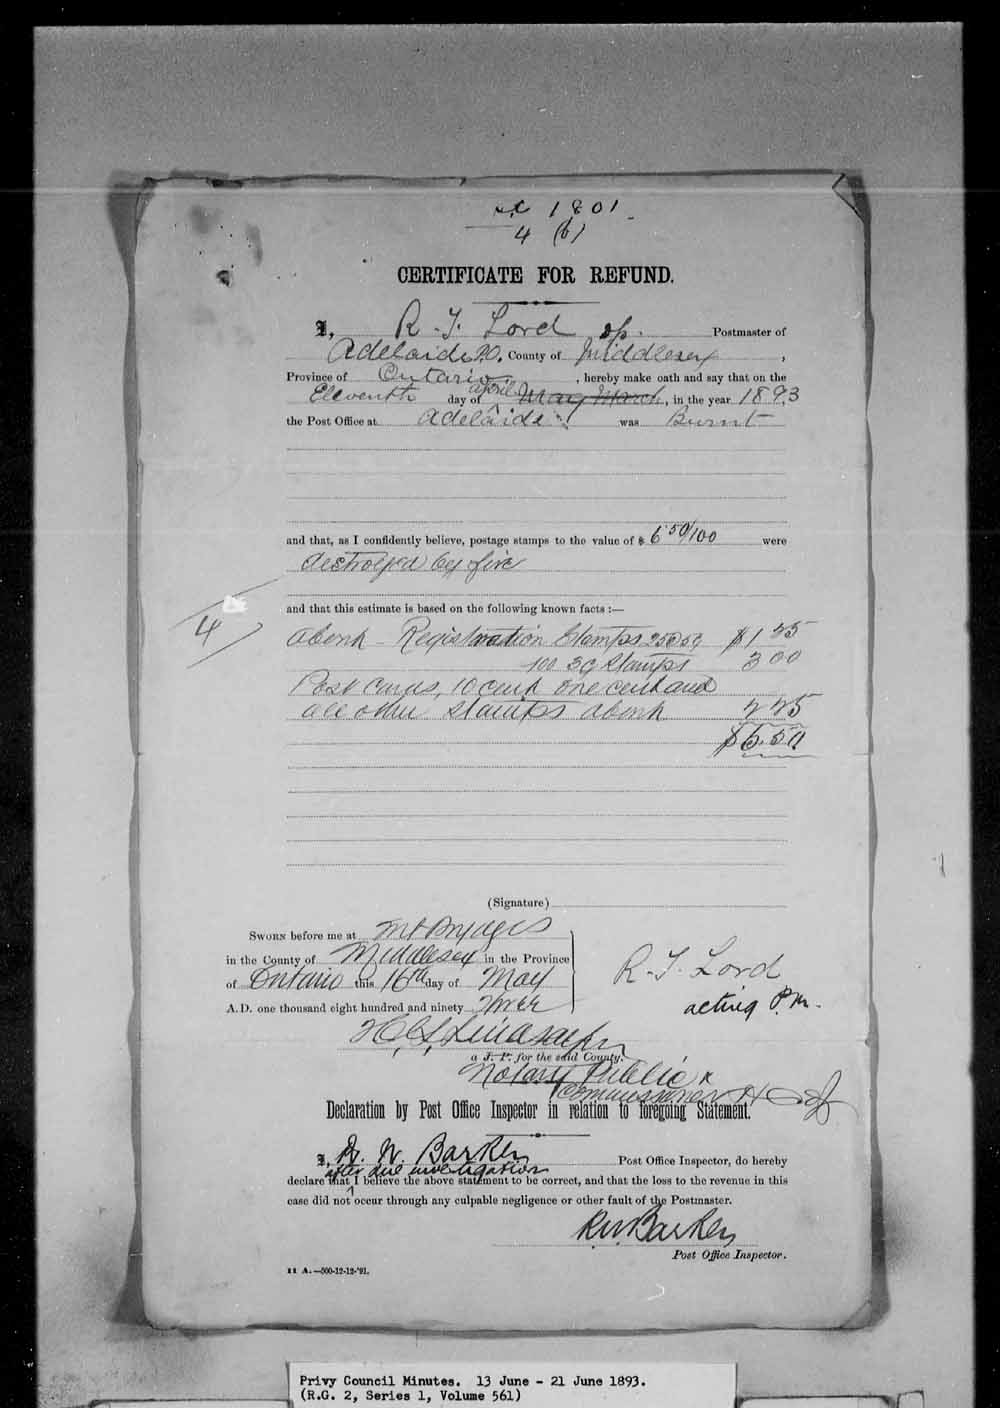 1801
4 (b)
CERTIFICATE FOR REFUND.
I, R. T. Lord Postmaster of
Adelaide P.O. County of Middlesex ,
Province of Ontario , hereby make oath and say that on the
Eleventh day of April May March, in the year 1893
the Post Office at Adelaide was Burnt
and that, as I confidently believe, postage stamps to the value of $ 6 50/100 were
destroyed by fire
and that this estimate is based on the following known facts :—
4
about Registration Stamps 25 @ 5¢ $1 25
100 3¢ Stamps 3 00
Post Cards, 10 cent one cent and
all other stamps about 2 25
$6.50
(Signature)
SWORN before me at Mt Brydges
in the County of Middlesex in the Province
of Ontario this 16th day of May
A.D. one thousand eight hundred and ninety three
R. T. Lord
acting P.M.
a J. P. for the said County.
Notary Public &
Commissioner
Declaration by Post Office Inspector in relation to foregoing Statement.
I, R. W. Barker Post Office Inspector, do hereby
after due investigation
declare that I believe the above statement to be correct, and that the loss to the revenue in this
case did not occur through any culpable negligence or other fault of the Postmaster.
R.W. Barker
Post Office Inspector.
11 A.—500-12-12-'91.
Privy Council Minutes. 13 June - 21 June 1893.
(R.G. 2, Series 1, Volume 561)